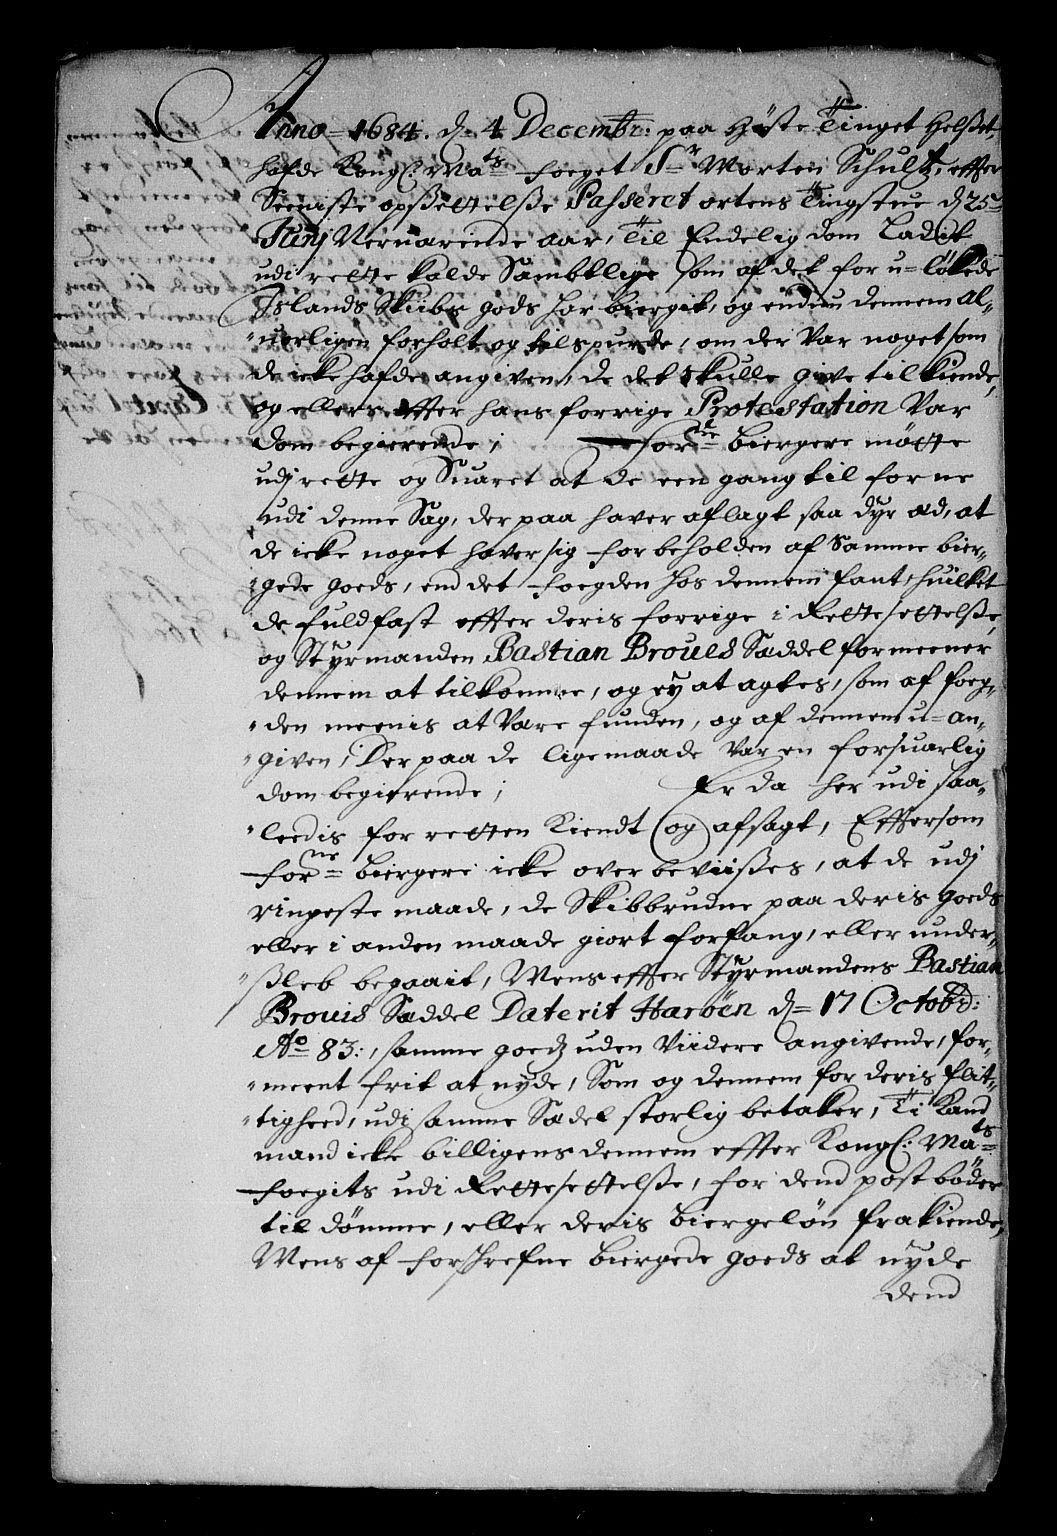 Anno 1684. d. 4 Decembr: paa Höste Tinget Helßet,
hafde Kongl: Ma:ts foeget S:r Morten Schultz, effter
Seeniste opßettelße Passeret ortens Tingstue d 25
Junj Nerværende aar, Til Endelig dom Ladit
udi rette kalde Sambtlige som af det for u-lökede
Islands Skibs gods har bierget, og endnu dennem Al-
uorligen forholt og tilspurde, om der Var noget som
de icke hafde angiven, de det skulle give tilkiende,
og ellers effter hans forrige Protestation Var
dom begierende; for:ne biergere mötte
udj rette og Suaret at de een gang til forne
udi denne Sag, der paa haver aflagt saa dyr æd, at
de icke noget haver sig forbeholden af Samme bier-
gede goeds, end det foegden hos dennem fant, huilket
de fuldfast effter deris forrige i Rettesettelße,
og Styrmanden Bastian Broues Sæddel formeener
dennem at tilkomme, og ey at agtes, som af foeg-
den meenis at Være funden, og af dennem u-an-
given, Der paa de lige maade Var en forsuarlig
dom begierende; Er da her udi saa-
leedis for retten Kiendt og afsagt, Efftersom
for:ne biergere icke overbeviißes, at de udj
ringeste maade, de Skibbrudne paa deris goeds
eller i anden maade giort forfang, eller under-
ßleb begaait, Mens effter Styrmandens Bastian
Brouis Sæddel Daterit Harböen d 17 Octobr:
A:o 83:, samme goedz uden Viidere angivende, for-
meent frit at nyde, Som og dennem for deris flit-
tigheed, udi samme Sædel storlig betaker, Ti Kand
mand icke billigens dennem effter Kongl: Ma:ts
foegits udi Rettesettelße, for dend post böder
til dömme, eller deris biergelön frakiende,
Mens af forschrefne biergede goeds at nyde
dend